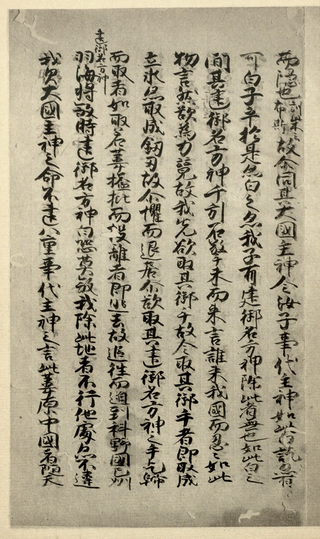 而隠也訓柴云布斯故尓問其大國主神今汝子事代主神如此白訖亦有
可白子乎於是亦白之亦我子有建御名方神除此者無也如此白之
間其建御名方神千引石擎手末而来言誰来我國而忍〻如此
物言然欲為力競故我先欲取其御手故令取其御手者即取成
立氷亦取成釼刃故尓懼而退居尓欲取其建御名方神之手乞歸
而取者如取若葦搤批而投離者即逃去故追往而迫到科野國之州
建御名方神
羽海将殺時建御名方神白恐莫殺我除此地者不行他處亦不違
我父大國主神之命不違八重事代主神之言此葦原中國者隨天